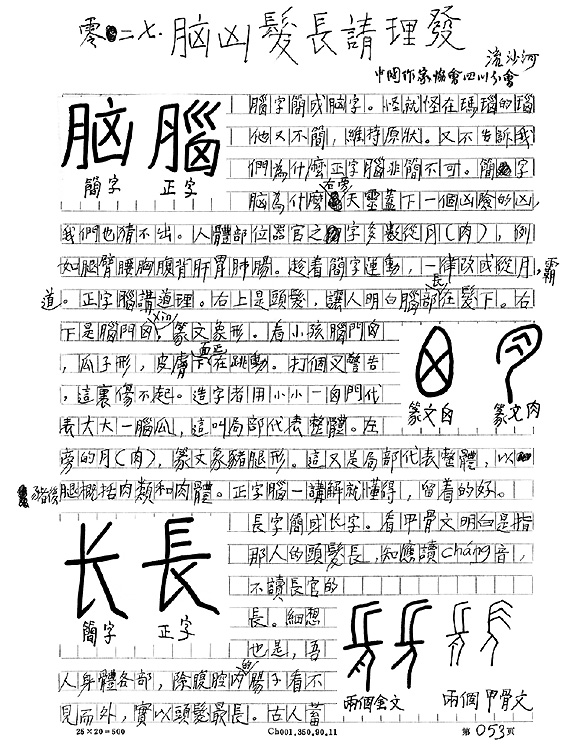 零〇二七.腦凶髮長請理發
流沙河
中国作家協會四川分會
脑 腦
簡字 正字
腦字簡成脑字。怪就怪在瑪瑙的瑙
他又不簡,維持原狀。又不告訴我
們為什麼正字腦非簡不可。簡字
脑為什麼右旁天靈蓋下一個凶險的凶,
我們也猜不出。人體部位器官之字多數從月(肉),例
如腿臂腰胸腹背肝胃肺腸。趁着簡字運動,一律改成從月,霸
道。正字腦講道理。右上是頭髮,讓人明白腦部長在髮下。右
下是腦門囟xìn,篆文象形。看小孩腦門囟
,瓜子形,皮膚下面在跳動。打個叉警告
,這裏傷不起。造字者用小小一囟門代
表大大一腦瓜,這叫局部代表整體。左
篆文囟 篆文肉
旁的月(肉),篆文象豬腿形。這又是局部代表整體,以
豬後腿概括肉類和肉體。正字腦一講解就懂得,留着的好。
长 長
簡字 正字
長字簡成长字。看甲骨文明白是指
那人的頭髮長,知應讀cháng音,
不讀長官的
長。細想
也是,吾
兩個金文 兩個甲骨文
人身體各部,除腹腔内的腸子看不
見而外,實以頭髮最長。古人蓄
25×20=500 Ch001.350.90.11 第053頁